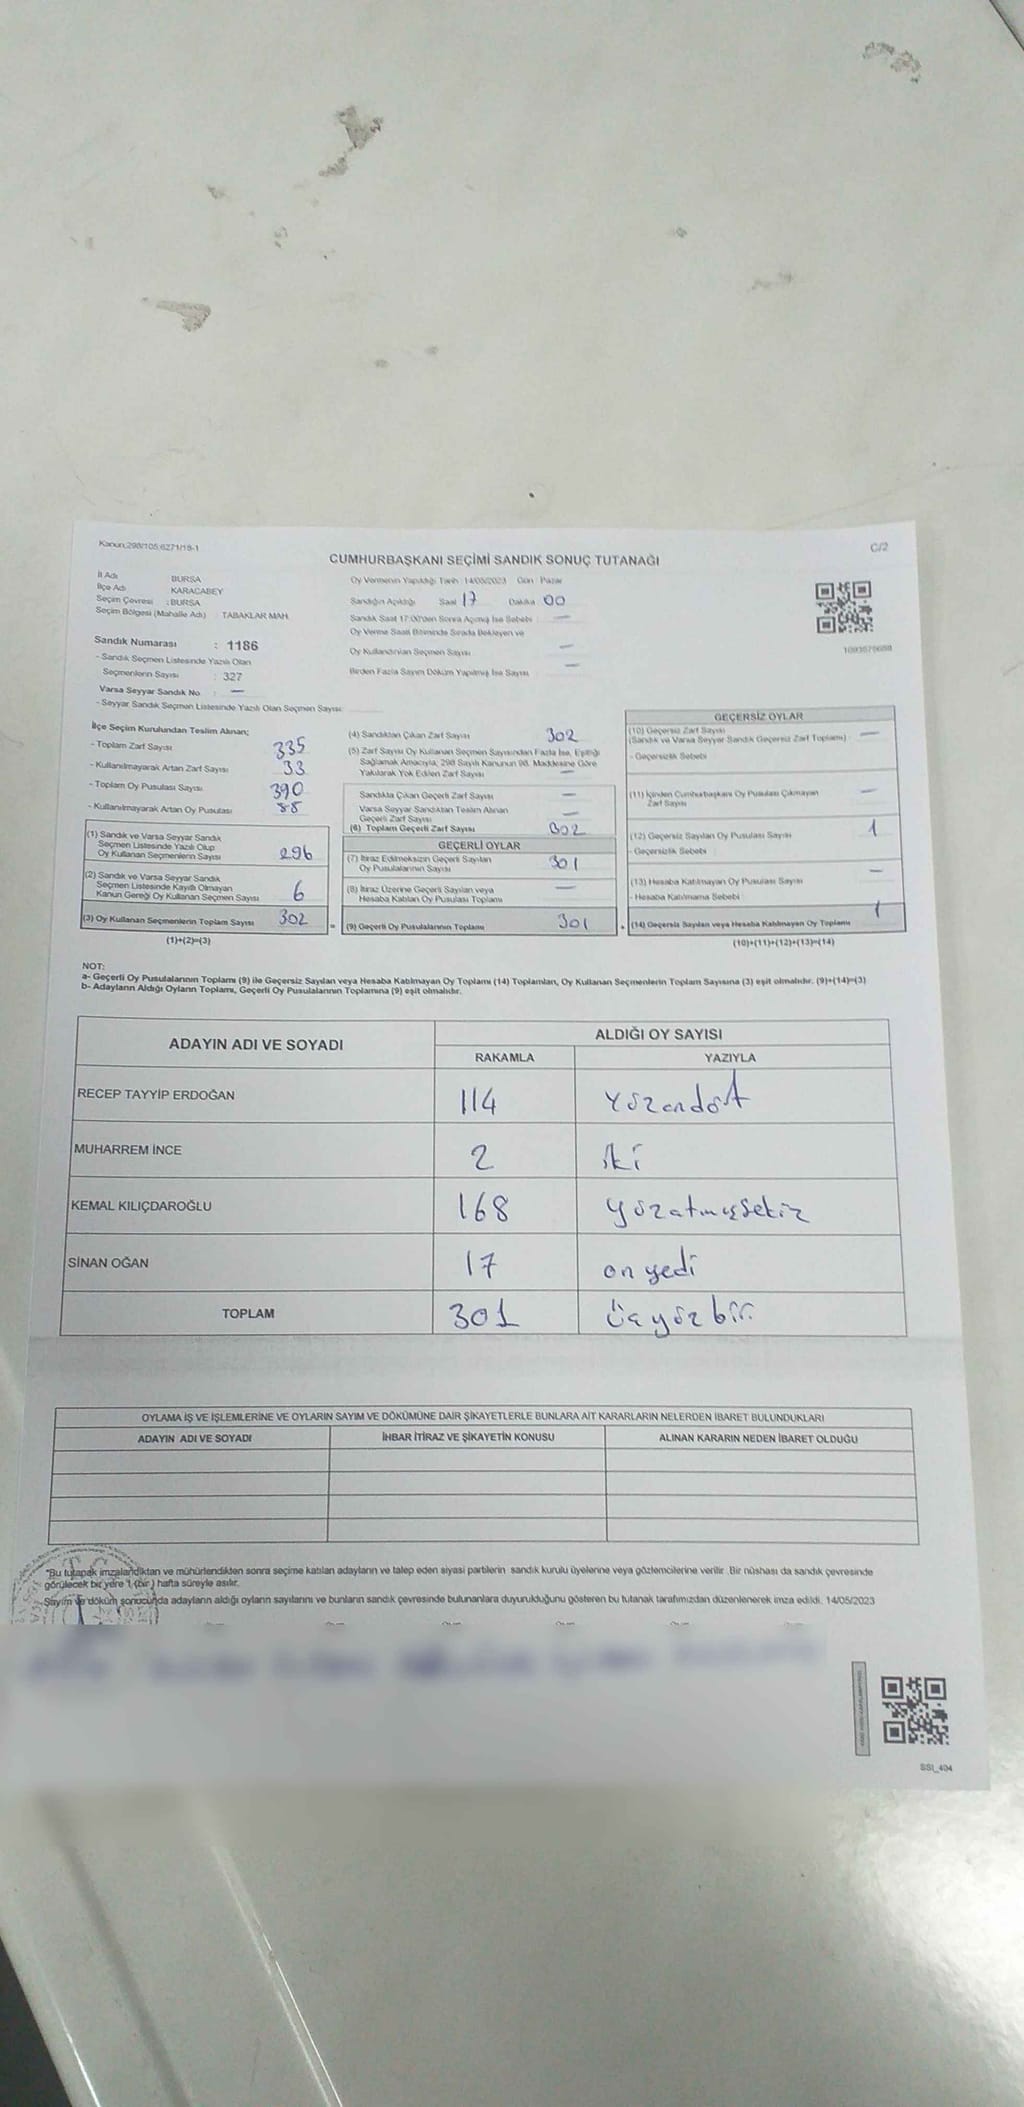 Kanun,298/105;6271/18-1
C/2
CUMHURBAŞKANI SEÇİMİ SANDIK SONUÇ TUTANAĞI
İl Adı BURSA
İlçe Adı KARACABEY
Seçim Çevresi : BURSA
Seçim Bölgesi (Mahalle Adı) : TABAKLAR MAH.
Sandık Numarası : 1186
- Sandık Seçmen Listesinde Yazılı Olan
Seçmenlerin Sayısı : 327
Varsa Seyyar Sandık No : —
- Seyyar Sandık Seçmen Listesinde Yazılı Olan Seçmen Sayısı:
Oy Vermenin Yapıldığı Tarih : 14/05/2023 Gün : Pazar
Sandığın Açıldığı Saat 17 Dakika 00
Sandık Saat 17:00'den Sonra Açılmış İse Sebebi : —
Oy Verme Saati Bitiminde Sırada Bekleyen ve
Oy Kullandırılan Seçmen Sayısı —
Birden Fazla Sayım Döküm Yapılmış İse Sayısı —
1093670688
İlçe Seçim Kurulundan Teslim Alınan;
- Toplam Zarf Sayısı 335
- Kullanılmayarak Artan Zarf Sayısı 33
- Toplam Oy Pusulası Sayısı 390
- Kullanılmayarak Artan Oy Pusulası 88
(1) Sandık ve Varsa Seyyar Sandık
Seçmen Listesinde Yazılı Olup
Oy Kullanan Seçmenlerin Sayısı 296
(2) Sandık ve Varsa Seyyar Sandık
Seçmen Listesinde Kayıtlı Olmayan
Kanun Gereği Oy Kullanan Seçmen Sayısı 6
(3) Oy Kullanan Seçmenlerin Toplam Sayısı 302
(1)+(2)=(3)
(4) Sandıktan Çıkan Zarf Sayısı 302
(5) Zarf Sayısı Oy Kullanan Seçmen Sayısından Fazla İse, Eşitliği
Sağlamak Amacıyla, 298 Sayılı Kanunun 98. Maddesine Göre
Yakılarak Yok Edilen Zarf Sayısı —
Sandıkta Çıkan Geçerli Zarf Sayısı —
Varsa Seyyar Sandıktan Teslim Alınan
Geçerli Zarf Sayısı —
(6) Toplam Geçerli Zarf Sayısı 302
GEÇERLİ OYLAR
(7) İtiraz Edilmeksizin Geçerli Sayılan
Oy Pusulalarının Sayısı 301
(8) İtiraz Üzerine Geçerli Sayılan veya
Hesaba Katılan Oy Pusulası Toplamı —
= (9) Geçerli Oy Pusulalarının Toplamı 301
GEÇERSİZ OYLAR
(10) Geçersiz Zarf Sayısı
(Sandık ve Varsa Seyyar Sandık Geçersiz Zarf Toplamı) : —
- Geçersizlik Sebebi
(11) İçinden Cumhurbaşkanı Oy Pusulası Çıkmayan
Zarf Sayısı —
(12) Geçersiz Sayılan Oy Pusulası Sayısı 1
- Geçersizlik Sebebi
(13) Hesaba Katılmayan Oy Pusulası Sayısı —
- Hesaba Katılmama Sebebi
+ (14) Geçersiz Sayılan veya Hesaba Katılmayan Oy Toplamı 1
(10)+(11)+(12)+(13)=(14)
NOT:
a- Geçerli Oy Pusulalarının Toplamı (9) ile Geçersiz Sayılan veya Hesaba Katılmayan Oy Toplamı (14) Toplamları, Oy Kullanan Seçmenlerin Toplam Sayısına (3) eşit olmalıdır. (9)+(14)=(3)
b- Adayların Aldığı Oyların Toplamı, Geçerli Oy Pusulalarının Toplamına (9) eşit olmalıdır.
ADAYIN ADI VE SOYADI ALDIĞI OY SAYISI
RAKAMLA YAZIYLA
RECEP TAYYİP ERDOĞAN 114 Yüzondört
MUHARREM İNCE 2 iki
KEMAL KILIÇDAROĞLU 168 yüzatmışsekiz
SİNAN OĞAN 17 on yedi
TOPLAM 301 üçyüz bir
OYLAMA İŞ VE İŞLEMLERİNE VE OYLARIN SAYIM VE DÖKÜMÜNE DAİR ŞİKAYETLERLE BUNLARA AİT KARARLARIN NELERDEN İBARET BULUNDUKLARI
ADAYIN ADI VE SOYADI İHBAR İTİRAZ VE ŞİKAYETİN KONUSU ALINAN KARARIN NEDEN İBARET OLDUĞU
*Bu tutanak imzalandıktan ve mühürlendikten sonra seçime katılan adayların ve talep eden siyasi partilerin sandık kurulu üyelerine veya gözlemcilerine verilir. Bir nüshası da sandık çevresinde
görülecek bir yere 1 (bir) hafta süreyle asılır.
Sayım ve döküm sonucunda adayların aldığı oyların sayılarını ve bunların sandık çevresinde bulunanlara duyurulduğunu gösteren bu tutanak tarafımızdan düzenlenerek imza edildi. 14/05/2023
SSI_404